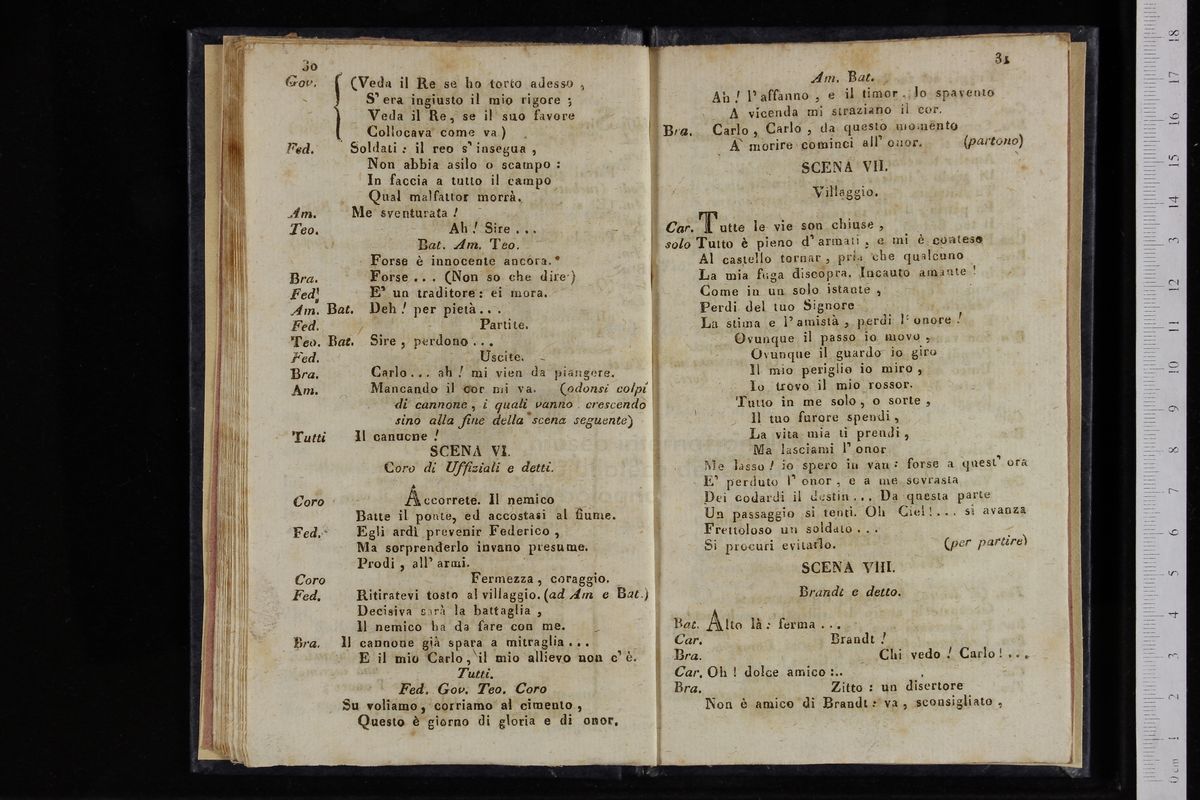 30
Gov. (Veda il Re se ho torto adesso ,
S' era ingiusto il mio rigore ;
Veda il Re, se il suo favore
Collocava come va )
Fed. Soldati : il reo s' insegua ,
Non abbia asilo o scampo :
In faccia a tutto il campo
Qual malfattor morrà.
Am. Me sventurata !
Teo. Ah ! Sire . . .
Bat. Am. Teo.
Forse è innocente ancora.
Bra. Forse . . . (Non so che dire)
Fed. E' un traditore : ei mora.
Am. Bat. Deh ! per pietà . . .
Fed. Partite.
Teo. Bat. Sire , perdono . . .
Fed. Uscite.
Bra. Carlo . . . ah ! mi vien da piangere.
Am. Mancando il cor mi va. (odonsi colpi
di cannone , i quali vanno crescendo
sino alla fine della scena seguente)
Tutti Il canuone !
SCENA VI.
Coro di Uffiziali e detti.
Coro Accorrete. Il nemico
Batte il ponte, ed accostasi al fiume.
Fed. Egli ardì prevenir Federico ,
Ma sorprenderlo invano presume.
Prodi , all' armi.
Coro Fermezza , coraggio.
Fed. Ritiratevi tosto al villaggio. (ad Am e Bat.)
Decisiva sarà la battaglia ,
Il nemico ha da fare con me.
Bra. Il cannone già spara a mitraglia . . .
E il mio Carlo , il mio allievo non c' è.
Tutti.
Fed. Gov. Teo. Coro
Su voliamo , corriamo al cimento ,
Questo è giorno di gloria e di onor.
31
Am. Bat.
Ah ! l' affanno , e il timor , lo spavento
A vicenda mi straziano il cor.
Bra. Carlo , Carlo , da questo momento
A morire cominci all' onor. (partono)
SCENA VII.
Villaggio.
Car. Tutte le vie son chiuse ,
solo Tutto è pieno d' armati , e mi è conteso
Al castello tornar , pria che qualcuno
La mia fuga discopra. Incauto amante !
Come in un solo istante ,
Perdi del tuo Signore
La stima e l' amistà , perdi l' onore !
Ovunque il passo io movo ,
Ovunque il guardo io giro
Il mio periglio io miro ,
Io trovo il mio rossor.
Tutto in me solo , o sorte ,
Il tuo furore spendi ,
La vita mia ti prendi ,
Ma lasciami l' onor
Me lasso ! io spero in van : forse a quest' ora
E' perduto l' onor , e a me sovrasta
Dei codardi il destin . . . Da questa parte
Un passaggio si tenti. Oh Ciel ! . . . si avanza
Frettoloso un soldato . . .
Si procuri evitarlo. (per partire)
SCENA VIII.
Brandt e detto.
Bat. Alto là : ferma . . .
Car. Brandt !
Bra. Chi vedo ! Carlo ! . . .
Car. Oh ! dolce amico : . .
Bra. Zitto : un disertore
Non è amico di Brandt : va , sconsigliato ,
0 cm 1 2 3 4 5 6 7 8 9 10 11 12 13 14 15 16 17 18